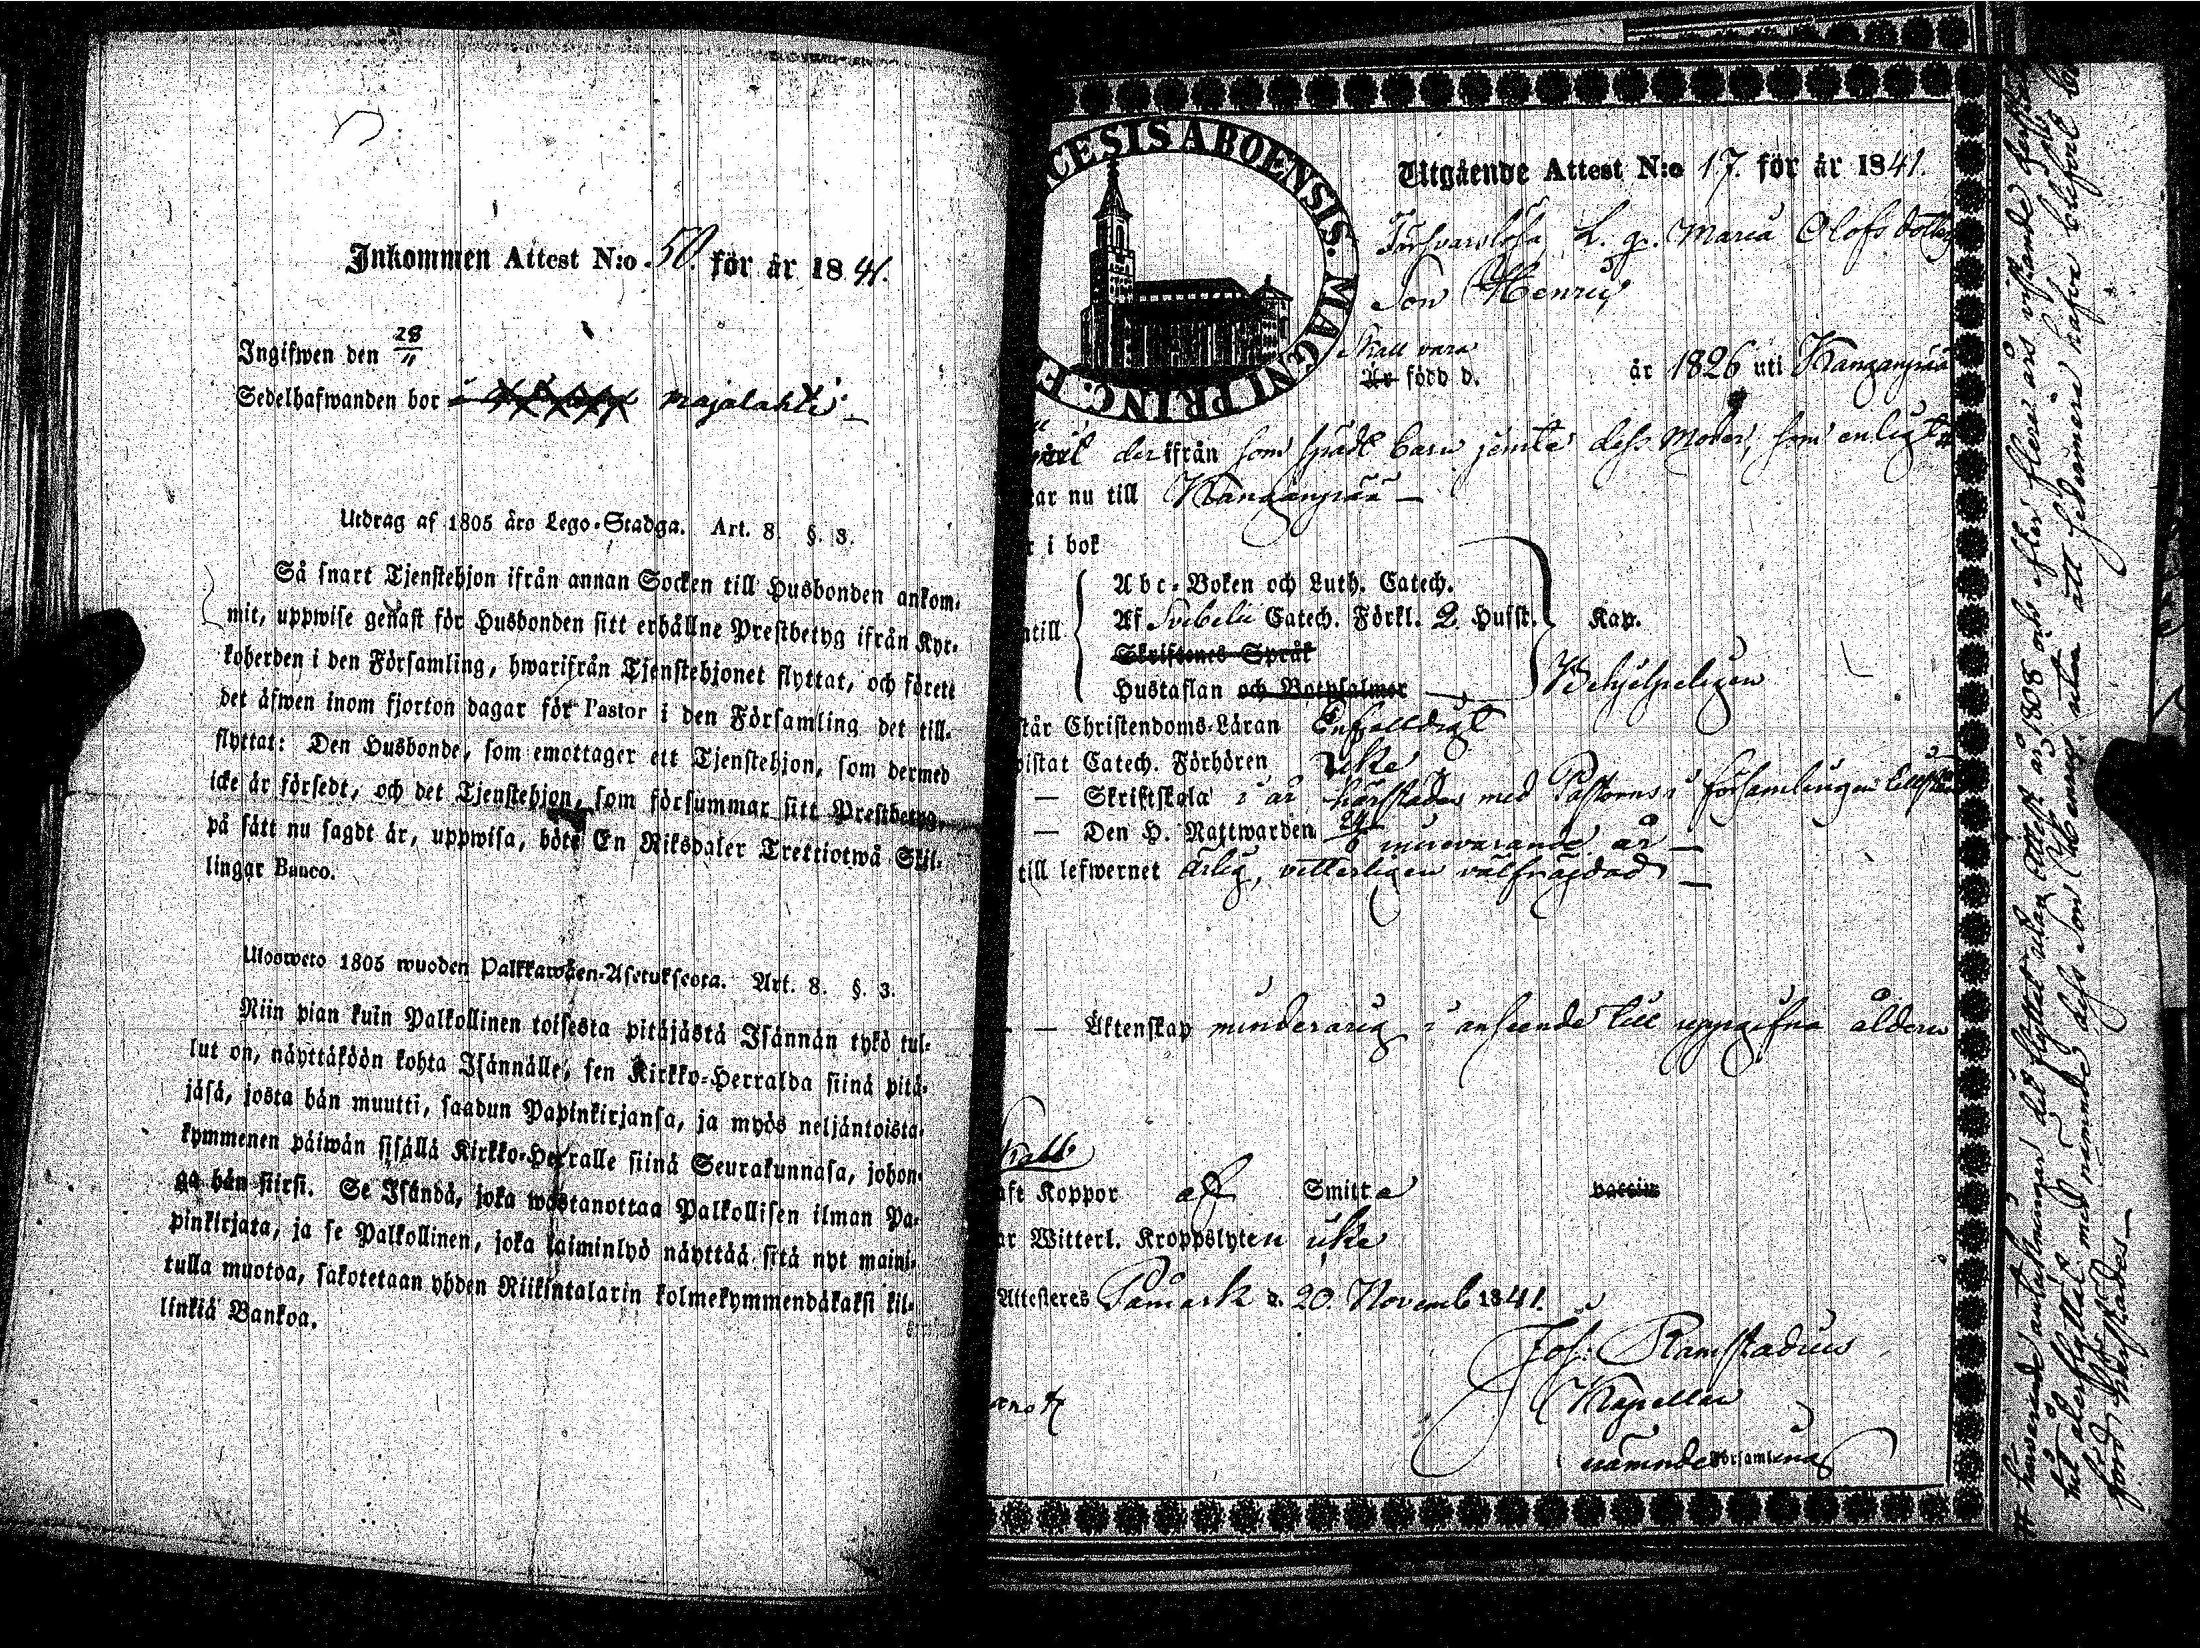 Inkommen Attest N:o 50. för år 1841.
Ingifwen den 28/11
Sedelhafwanden bor i Majalahti
Utdrag af 1805 års Lego-Stadga. Art. 8. §. 3.
Så snart Tjenstehjon ifrån annan Socken till Husbonden ankom-
mit, uppwise genast för Husbonden sitt erhållne Prestbetyg ifrån Kyr-
koherden i den Församling, hwarifrån Tjenstehjonet flyttat, och förete
det äfwen inom fjorton dagar för Pastor i den Församling det till-
flyttat: Den Husbonde, som emottager ett Tjenstehjon, som dermed
icke är försedt, och det Tjenstehjon, som försummar sitt Prestbetyg,
på sätt nu sagdt är, uppwisa, böte En Riksdaler Trettiotwå Skil-
lingar Banco.
Uloswetо 1805 wuoden Palkkawäen-Asetuksesta. Art. 8. §. 3.
Niin pian kuin Palkollinen toisesta pitäjästä Isännän tykö tul-
lut on, näyttäköön kohta Isännälle, sen Kirkko-Herralda siinä pitä-
jäsä, josta hän muutti, saadun Papinkirjansa, ja myös neljäntoista-
kymmenen päiwän sisällä Kirkko-Herralle siinä Seurakunnasa, johon-
ga hän siirsi. Se Isändä, joka wastanottaa Palkollisen ilman Pa-
pinkirjata, ja se Palkollinen, joka laiminlyö näyttää sitä nyt maini-
tulla muotoa, sakotetaan yhden Riikintalarin kolmekymmendäkaksi kil-
linkiä Bankoa.
CESIS ABOENSIS. MAGNI PRINC. F
Utgående Attest N:o 17. för år 1841.
Försvarslösa L. q. Maria Olofsdotters
Son Henric
skall vara
Är född d. år 1826 uti Kangangrää
derifrån som spädt barn jemte dess Moder, som enligt
tar nu till Kangangrää
r i bok
Abc-Boken och Luth. Catech.
ntill Af Svebelii Catech. Förkl. 2 Hufst. Kap.
Skriftenes Språk
Hustaflan och Botpsalmer Behjelpeligen
står Christendoms-Läran Enfalldigt
vistat Catech. Förhören icke
— Skriftskola i år härstädes med Pastorns i församlingen
— Den H. Nattwarden innevarande år
till lefwernet ärlig, vitterligen välfräjdad
— Äktenskap minderårig i anseende till uppgifna åldern
aft Koppor af Smitta vaccin
ar Witterl. Kroppslyten icke
Attesteras Påmark d. 20. Novemb 1841.
Joh: Ramstadius
Kapellan
nämnde Församling
hit återflyttat med nämnde dess Son Henric, utan att sedermera hafva blifvit
förd härstädes